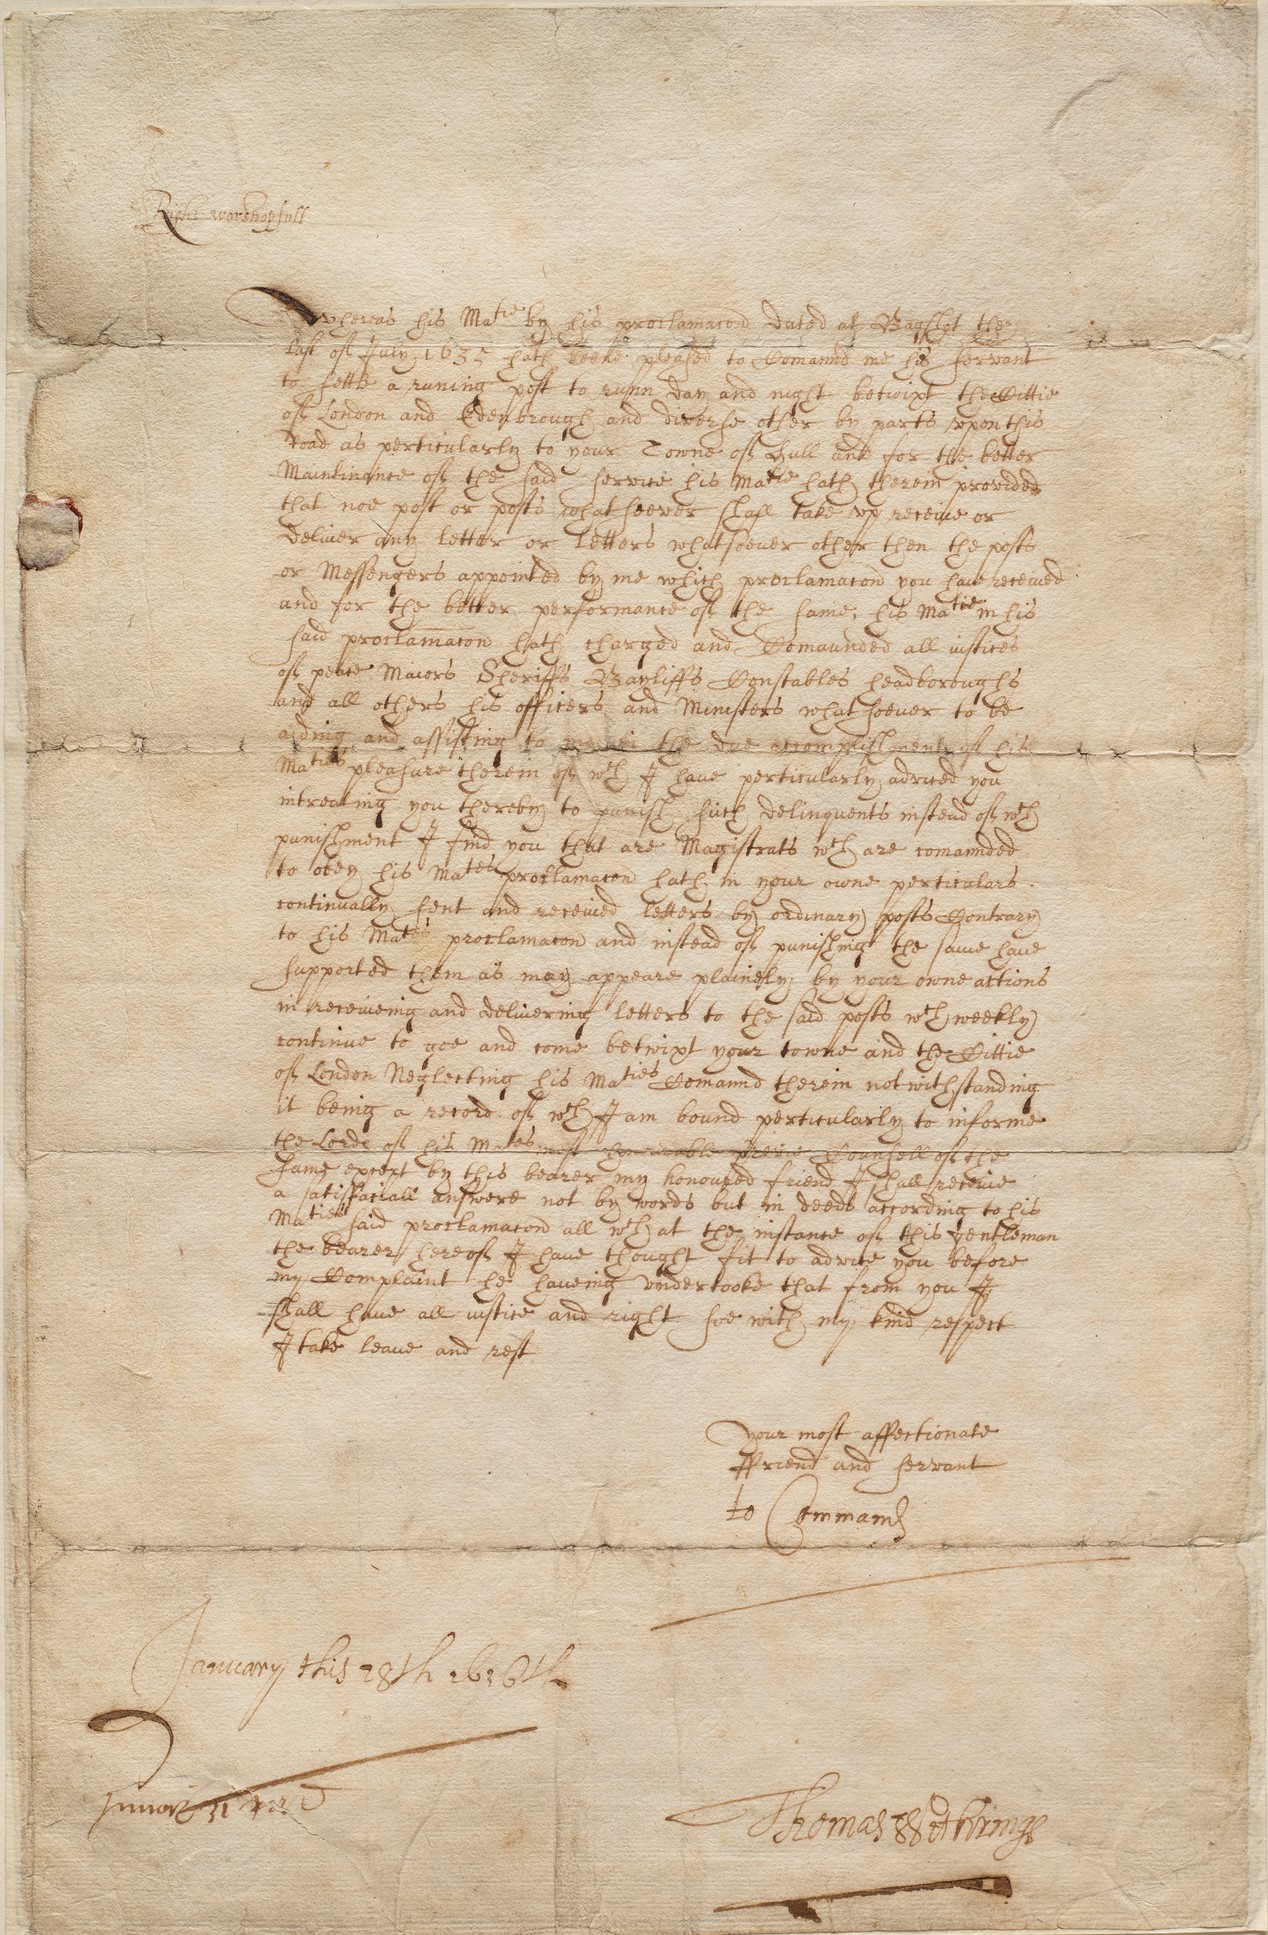 Right worshopfull
Whereas his Matie by his proclamacon dated at Bagshot the
last of July 1635 hath beene pleased to Comannd me his servant
to settle a runing post to runn day and night betwixt the Cittie
of London and Edenborough and diverse other by parts vpon this
road as perticularly to your Towne of Hull and for the better
Maintinance of the said service his Matie hath therein provided
that noe post or posts whatsoever shall take vp receive or
deliver any letter or letters whatsoever other then the posts
or Messengers appointed by me which proclamacon you have received
and for the better performance of the same, his Matie in his
said proclamacon hath charged and Comaunded all iustices
of peace Maiors Sheriffs Bayliffs Constables headboroughs
and all others his officers and Ministers whatsoever to be
aiding and assisting to me in the due accomplishment of his
Maties pleasure therein of wch I have perticularly adviced you
intreating you thereby to punish such delinquents instead of wch
punishment I find you that are Magistrats wch are comannded
to obey his Maties proclamacon hath in your owne perticulars
continually sent and received letters by ordinary posts Contrary
to his Maties proclamacon and instead of punishing the same have
supported them as may appeare plainely by your owne actions
in receiveing and delivering letters to the said posts wch weekly
continue to goe and come betwixt your towne and the Cittie
of London Neglecting his Maties Comannd therein notwithstanding
it being a record of wch I am bound perticularly to informe
the Lords of his Maties most honorable privie Counsell of the
same except by this bearer my honoured friend I shall receive
a satisfactall answere not by words but in deeds according to his
Maties said proclamacon all wch at the instance of this gentleman
the bearer hereof I have thought fit to advice you before
my Complaint he haveing vndertooke that from you I
shall have all iustice and right soe with my kind respect
I take leave and rest
your most affectionate
ffriend and servant
to Command
January this 28th 1636th
Thomas Witherings